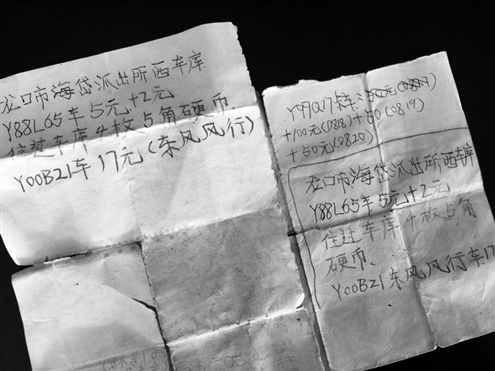 龙口市海岱派出所西车库
Y88L65车5元+2元
住过车库4枚5角硬币
Y00B21车17元(东风风行)
+50元(0820)
龙口市海岱派出所西车库
Y88L65车5元+2元
住过车库4枚5角
硬币、
Y00B21东风风行车17